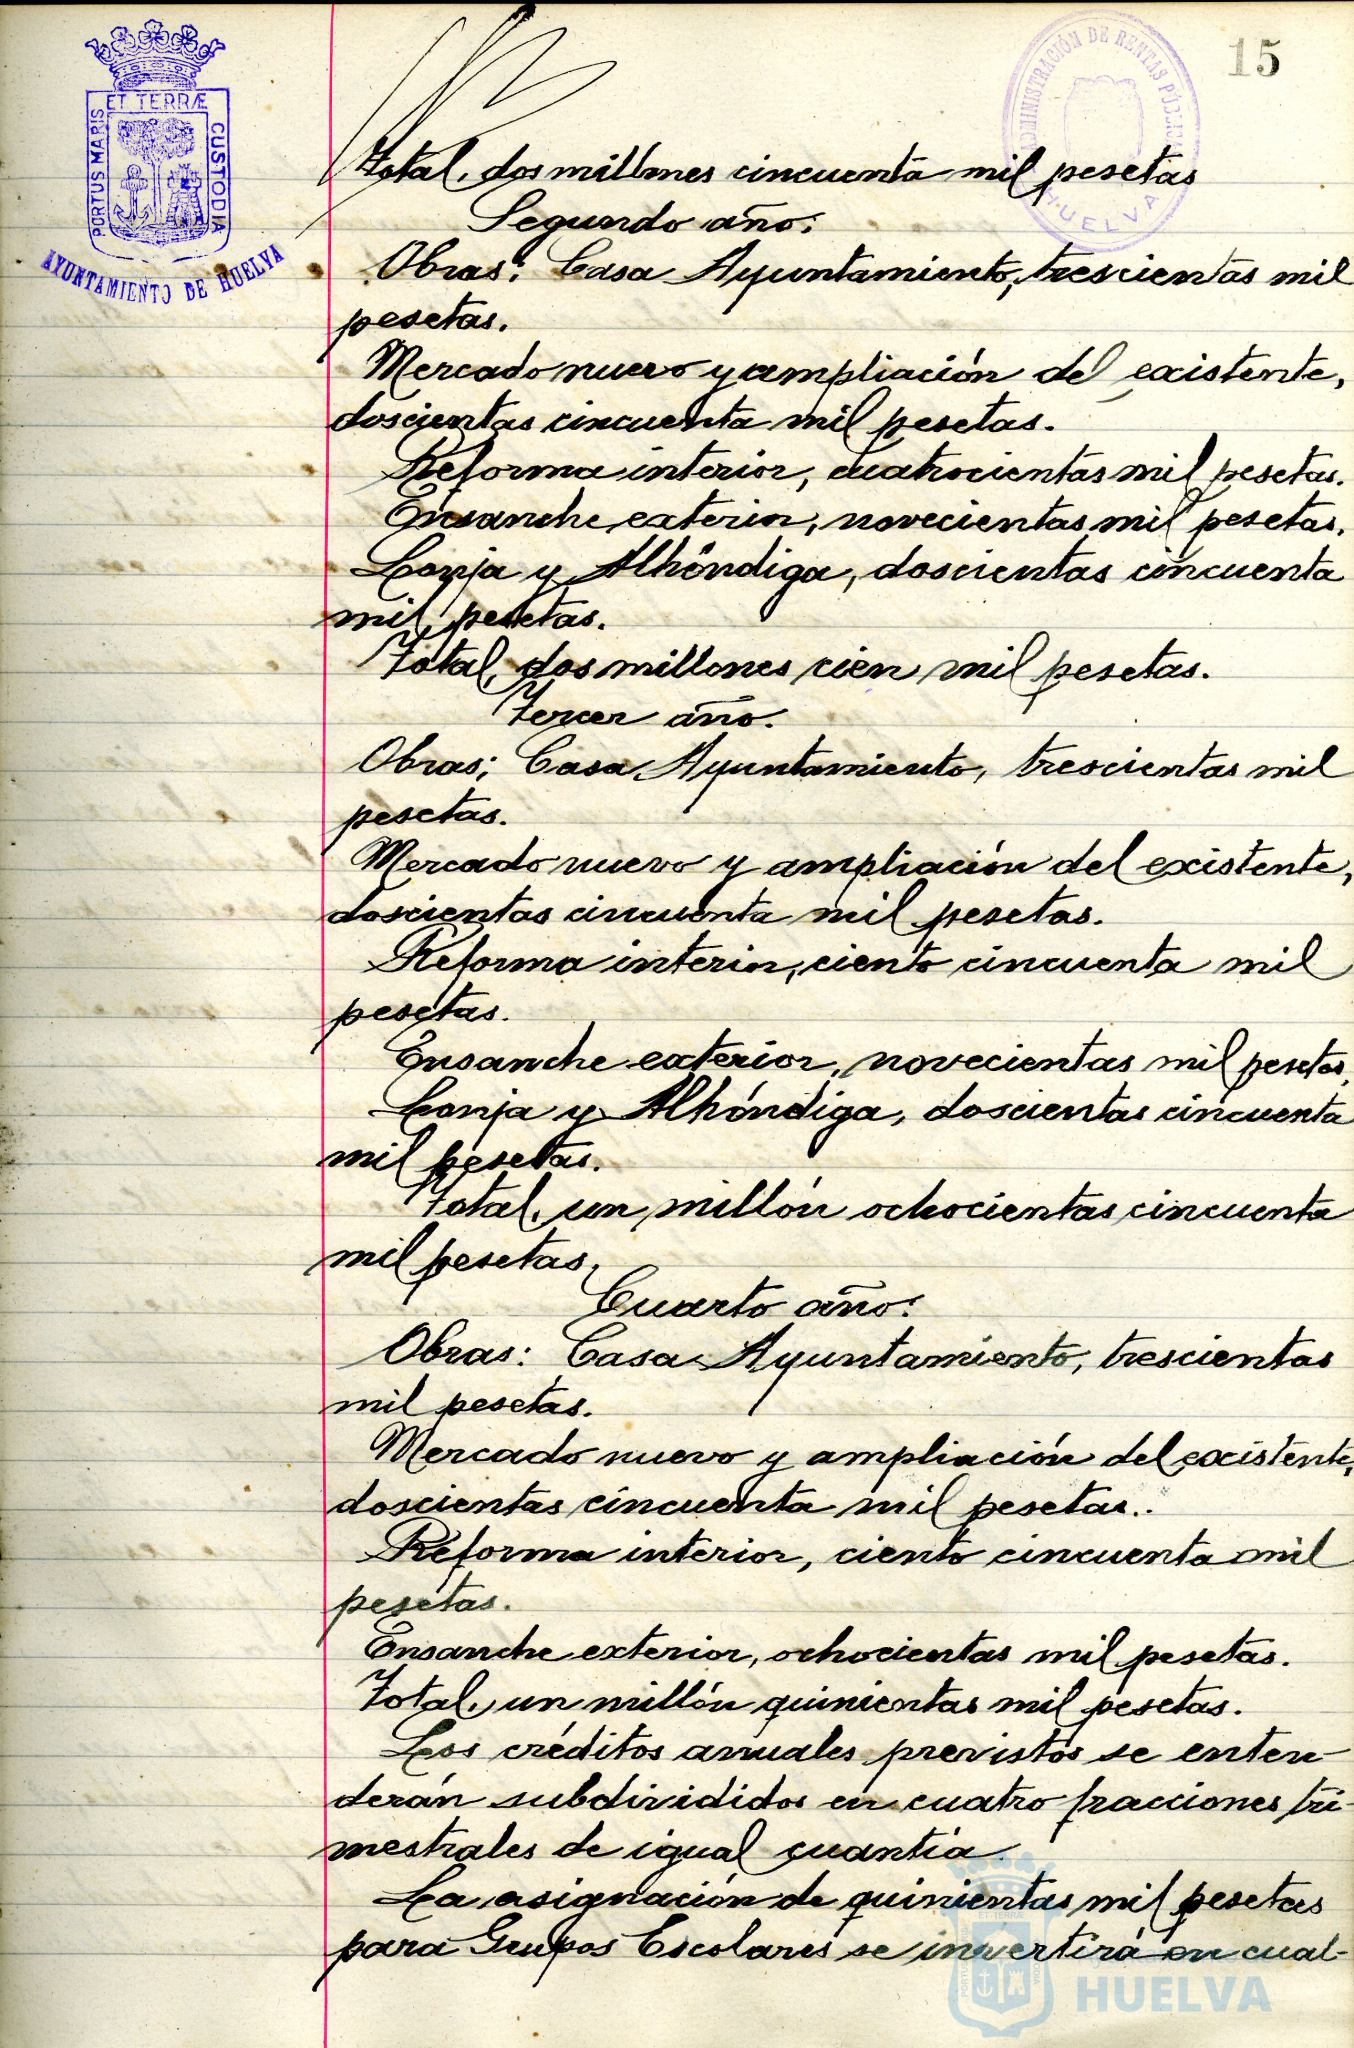 15
PORTUS MARIS
ET TERRÆ
CUSTODIA
AYUNTAMIENTO DE HUELVA
ADMINISTRACIÓN DE RENTAS PÚBLICAS
HUELVA
Total, dos millones cincuenta mil pesetas
Segundo año:
Obras: Casa Ayuntamiento, trescientas mil
pesetas.
Mercado nuevo y ampliación del existente,
doscientas cincuenta mil pesetas.
Reforma interior, cuatrocientas mil pesetas.
Ensanche exterior, novecientas mil pesetas.
Lonja y Alhóndiga, doscientas cincuenta
mil pesetas.
Total, dos millones cien mil pesetas.
Tercer año.
Obras; Casa Ayuntamiento, trescientas mil
pesetas.
Mercado nuevo y ampliación del existente,
doscientas cincuenta mil pesetas.
Reforma interior, ciento cincuenta mil
pesetas.
Ensanche exterior, novecientas mil pesetas,
Lonja y Alhóndiga, doscientas cincuenta
mil pesetas.
Total, un millón ochocientas cincuenta
mil pesetas,
Cuarto año:
Obras: Casa Ayuntamiento, trescientas
mil pesetas.
Mercado nuevo y ampliación del existente,
doscientas cincuenta mil pesetas.
Reforma interior, ciento cincuenta mil
pesetas.
Ensanche exterior, ochocientas mil pesetas.
Total, un millón quinientas mil pesetas.
Los créditos anuales previstos se enten-
derán subdivididos en cuatro fracciones tri-
mestrales de igual cuantía.
La asignación de quinientas mil pesetas
para Grupos Escolares se invertirá en cual-
HUELVA